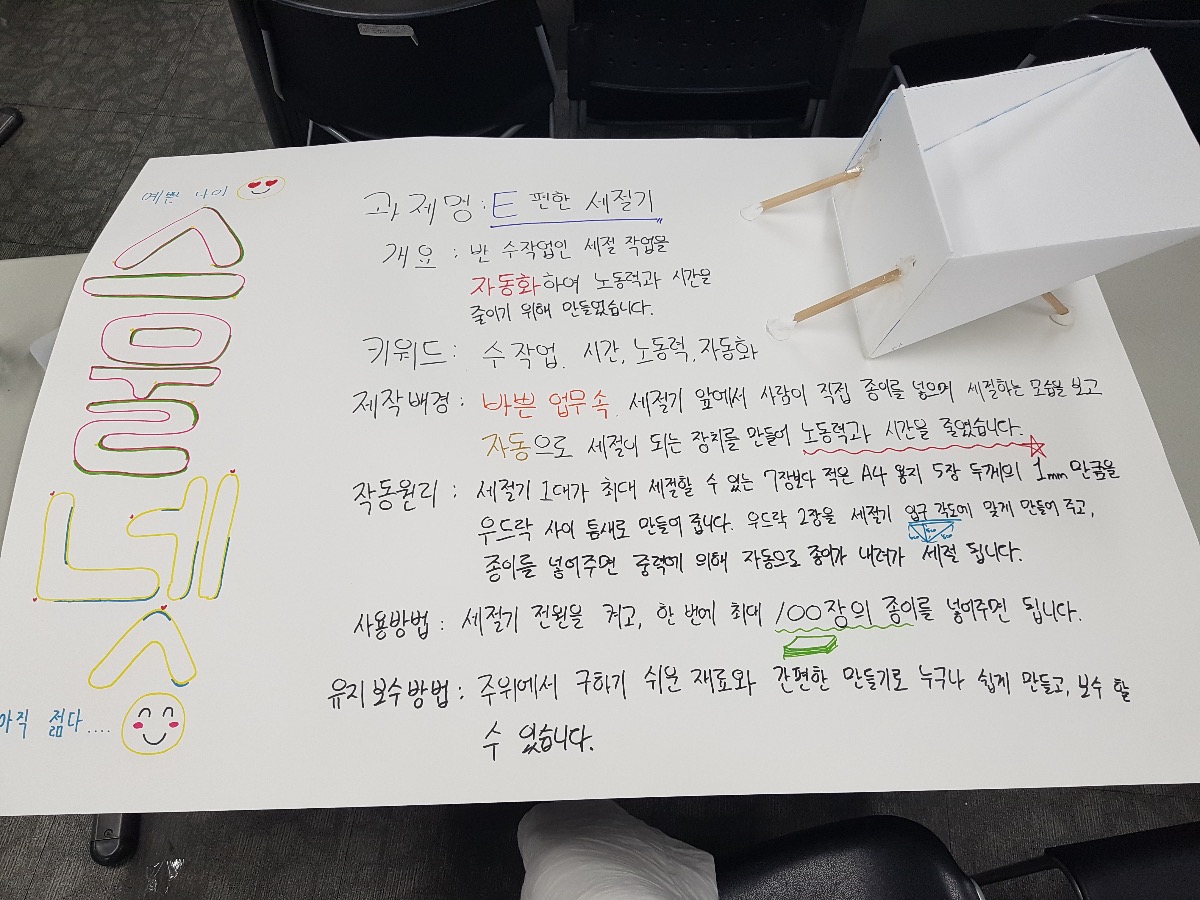 예쁜 나이
스물네 살
아직 젊다....
과제명 : E 편한 세절기
개요 : 반 수작업인 세절 작업을
자동화하여 노동력과 시간을
줄이기 위해 만들었습니다.
키워드 : 수작업, 시간, 노동력, 자동화
제작배경 : 바쁜 업무 속, 세절기 앞에서 사람이 직접 종이를 넣으며 세절하는 모습을 보고
자동으로 세절이 되는 장치를 만들어 노동력과 시간을 줄였습니다.
작동원리 : 세절기 1대가 최대 세절할 수 있는 7장보다 적은 A4 용지 5장 두께의 1mm 만큼을
우드락 사이 틈새로 만들어 줍니다. 우드락 2장을 세절기 입구 각도에 맞게 만들어 주고,
종이를 넣어주면 중력에 의해 자동으로 종이가 내려가 세절 됩니다.
사용방법 : 세절기 전원을 켜고, 한 번에 최대 100장의 종이를 넣어주면 됩니다.
유지보수방법 : 주위에서 구하기 쉬운 재료와 간편한 만들기로 누구나 쉽게 만들고, 보수 할
수 있습니다.